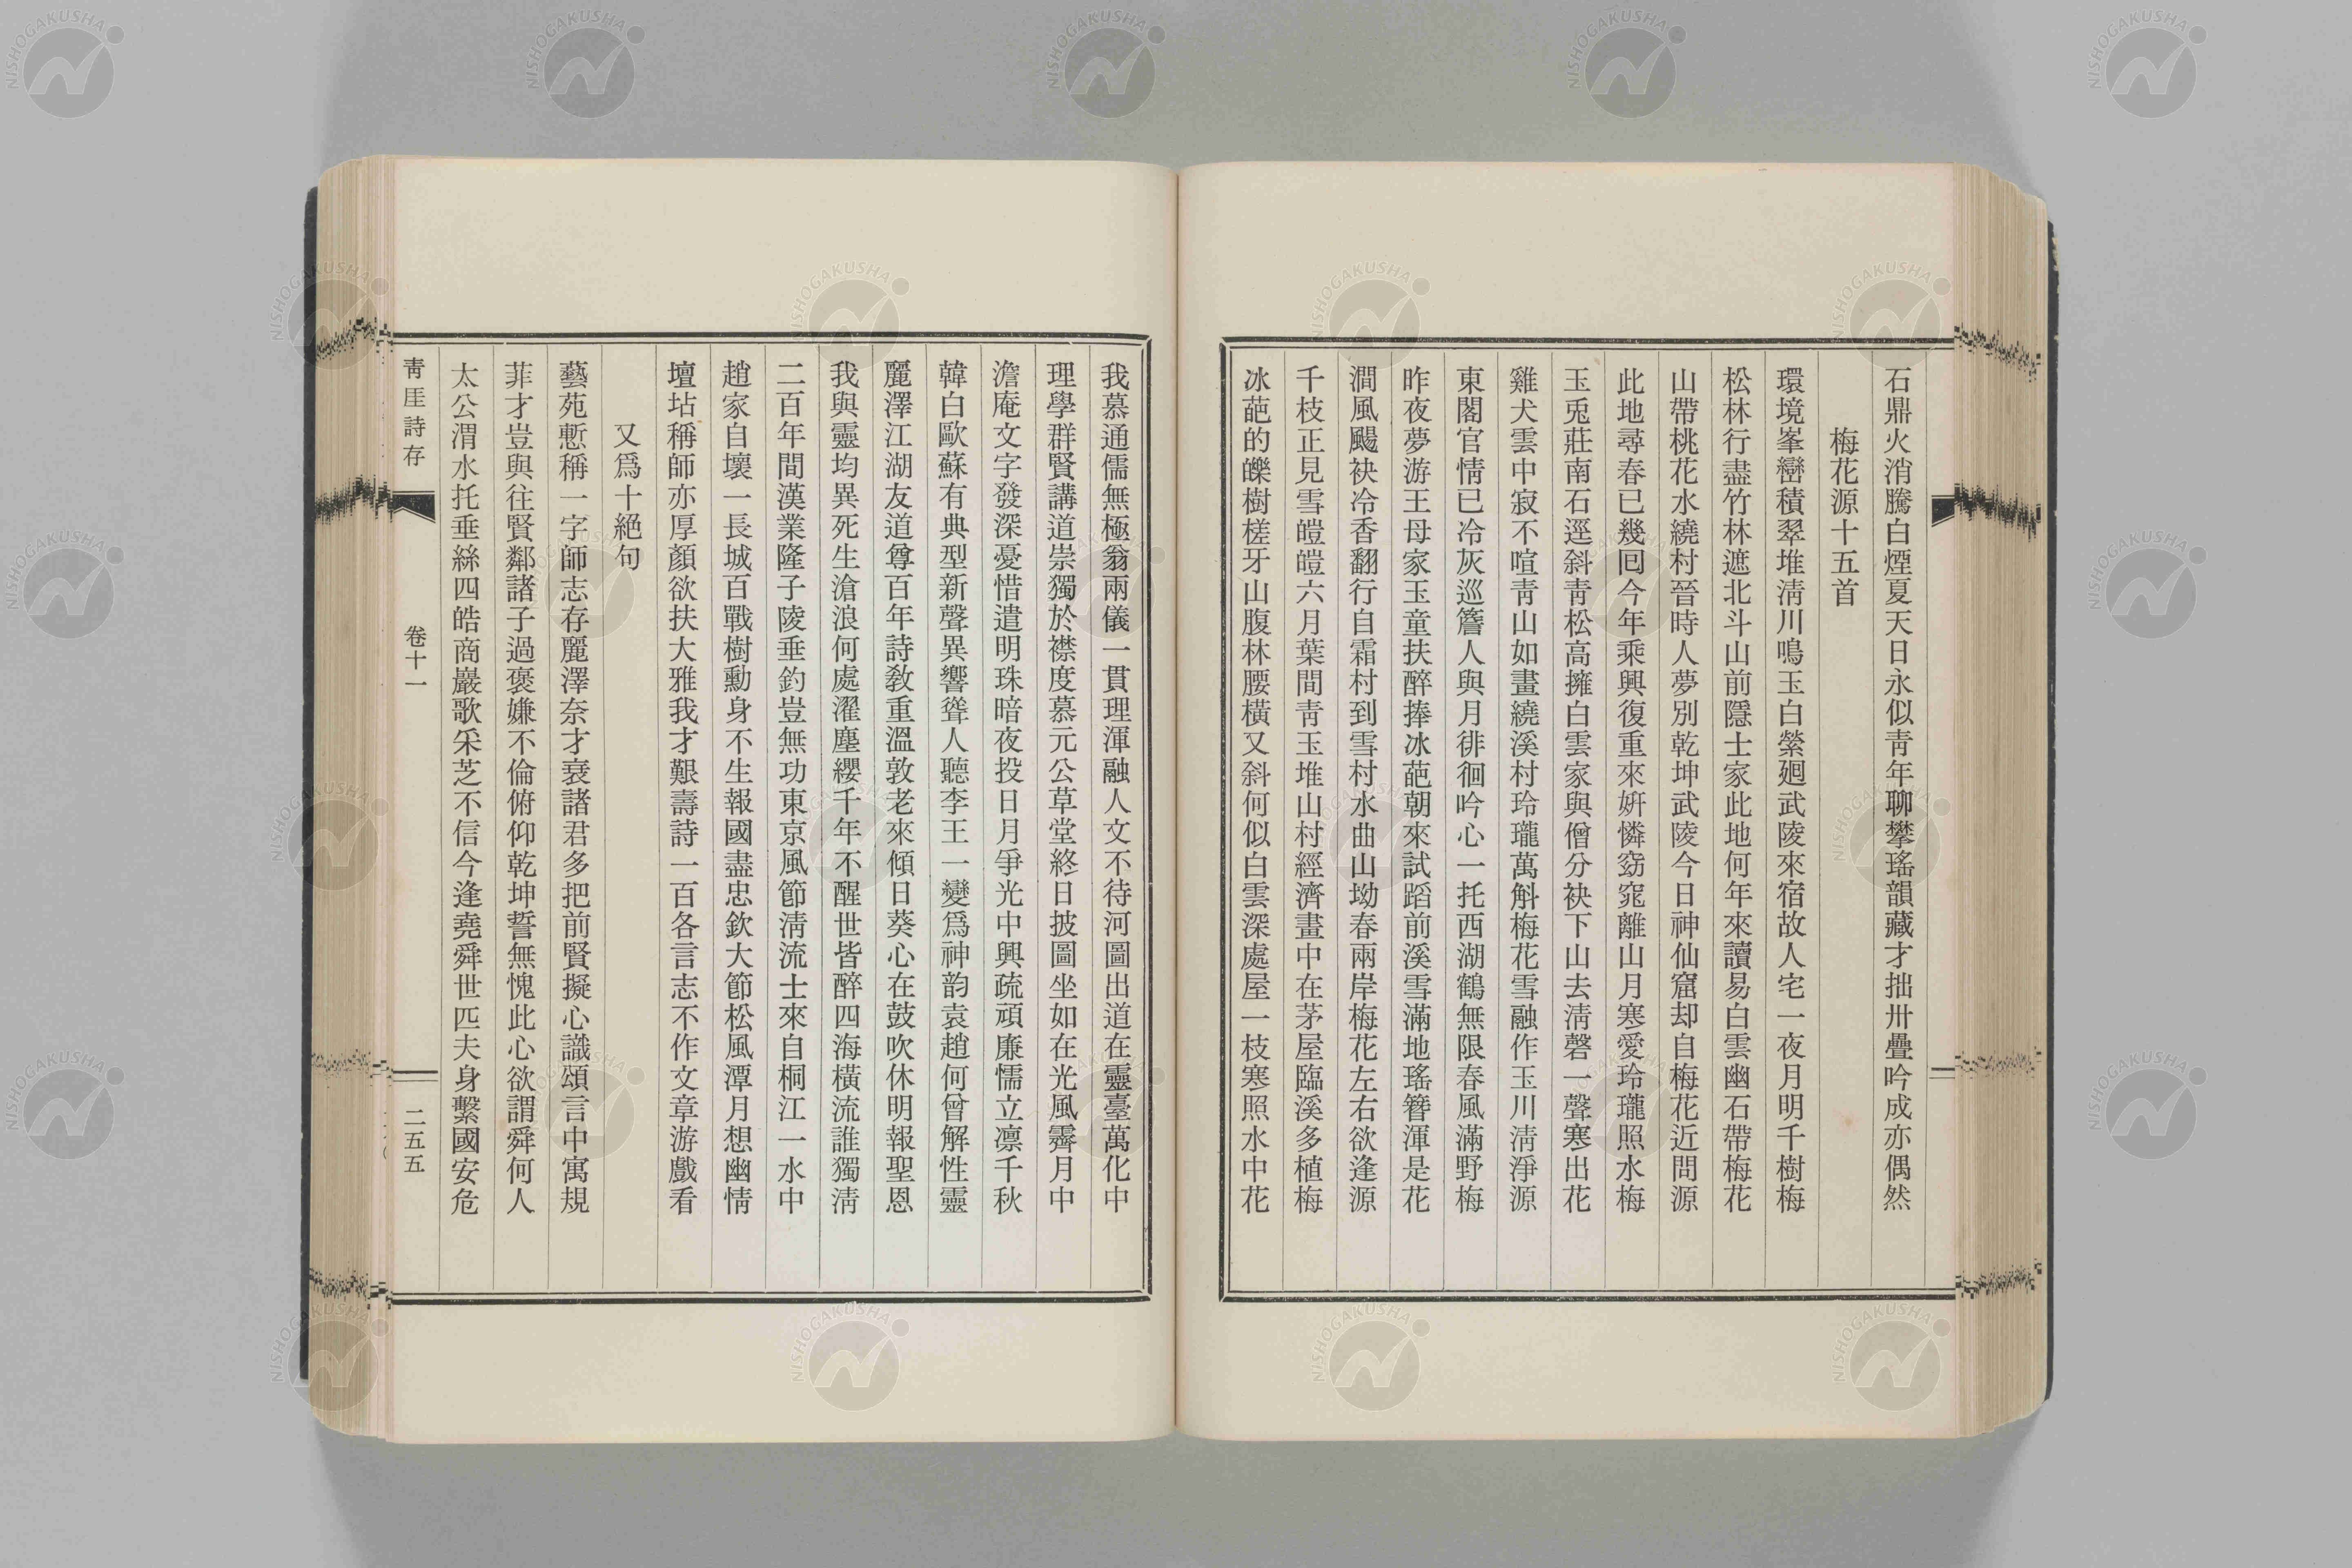 石鼎火消騰白煙夏天日永似靑年聊攀瑤韻藏才拙卅疊吟成亦偶然
梅花源十五首
環境峯巒積翠堆淸川鳴玉白縈廻武陵來宿故人宅一夜月明千樹梅
松林行盡竹林遮北斗山前隱士家此地何年來讀易白雲幽石帶梅花
山帶桃花水繞村晉時人夢別乾坤武陵今日神仙窟却自梅花近問源
此地尋春已幾囘今年乘興復重來姸憐窈窕離山月寒愛玲瓏照水梅
玉兎莊南石逕斜靑松高擁白雲家與僧分袂下山去淸磬一聲寒出花
雞犬雲中寂不喧靑山如畫繞溪村玲瓏萬斛梅花雪融作玉川淸淨源
東閣官情已冷灰巡簷人與月徘徊吟心一托西湖鶴無限春風滿野梅
昨夜夢游王母家玉童扶醉捧冰葩朝來試蹈前溪雪滿地瑤簪渾是花
澗風颺袂冷香翻行自霜村到雪村水曲山坳春兩岸梅花左右欲逢源
千枝正見雪皚皚六月葉間靑玉堆山村經濟畫中在茅屋臨溪多植梅
冰葩的皪樹槎牙山腹林腰橫又斜何似白雲深處屋一枝寒照水中花
我慕通儒無極翁兩儀一貫理渾融人文不待河圖出道在靈臺萬化中
理學群賢講道崇獨於襟度慕元公草堂終日披圖坐如在光風霽月中
澹庵文字發深憂惜遣明珠暗夜投日月爭光中興疏頑廉懦立凛千秋
韓白歐蘇有典型新聲異響聳人聽李王一變爲神韵袁趙何曾解性靈
麗澤江湖友道尊百年詩敎重溫敦老來傾日葵心在鼓吹休明報聖恩
我與靈均異死生滄浪何處濯塵纓千年不醒世皆醉四海橫流誰獨淸
二百年間漢業隆子陵垂釣豈無功東京風節淸流士來自桐江一水中
趙家自壞一長城百戰樹勳身不生報國盡忠欽大節松風潭月想幽情
壇坫稱師亦厚顏欲扶大雅我才艱壽詩一百各言志不作文章游戲看
又爲十絕句
藝苑慙稱一字師志存麗澤奈才衰諸君多把前賢擬心識頌言中寓規
菲才豈與往賢鄰諸子過褒嫌不倫俯仰乾坤誓無愧此心欲謂舜何人
太公渭水托垂絲四皓商巖歌采芝不信今逢堯舜世匹夫身繫國安危
靑厓詩存
卷十一
二五五
NISHOGAKUSHA